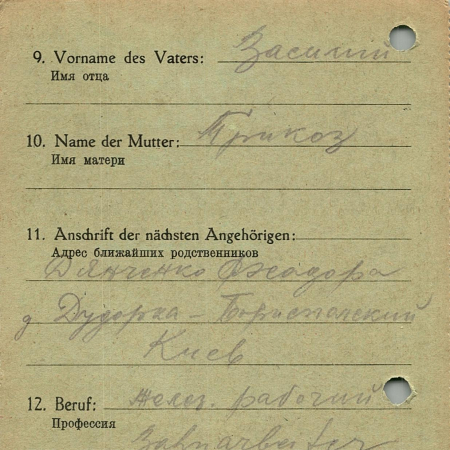 9. Vorname des Vaters: Василий
Имя отца
10. Name der Mutter: Прикоз
Имя матери
11. Anschrift der nächsten Angehörigen:
Адрес ближайших родственников
Дянченко Феодора
д Дудорка - Бориспачский
Киев
12. Beruf: Желез. рабочий
Профессия
Bahnarbeiter